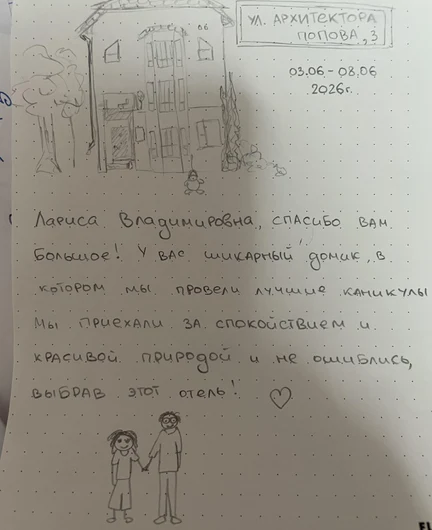 УЛ. АРХИТЕКТОРА
ПОПОВА, 3
03.06 - 08.06
2026г.
Лариса Владимировна, спасибо вам
большое! У вас шикарный домик, в
котором мы провели лучшие каникулы
Мы приехали за спокойствием и
красивой природой и не ошиблись,
выбрав этот отель!